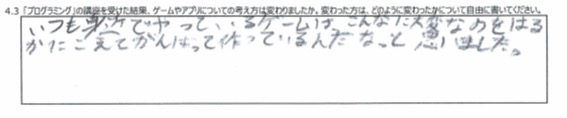 4.3 「プログラミング」の講座を受けた結果、ゲームやアプリについての考え方は変わりましたか。変わった方は、どのように変わったかについて自由に書いてください。
いつも でやっているゲームは、こんなに大変なのをはる
かにこえてがんばって作っているんだなっと思いました。